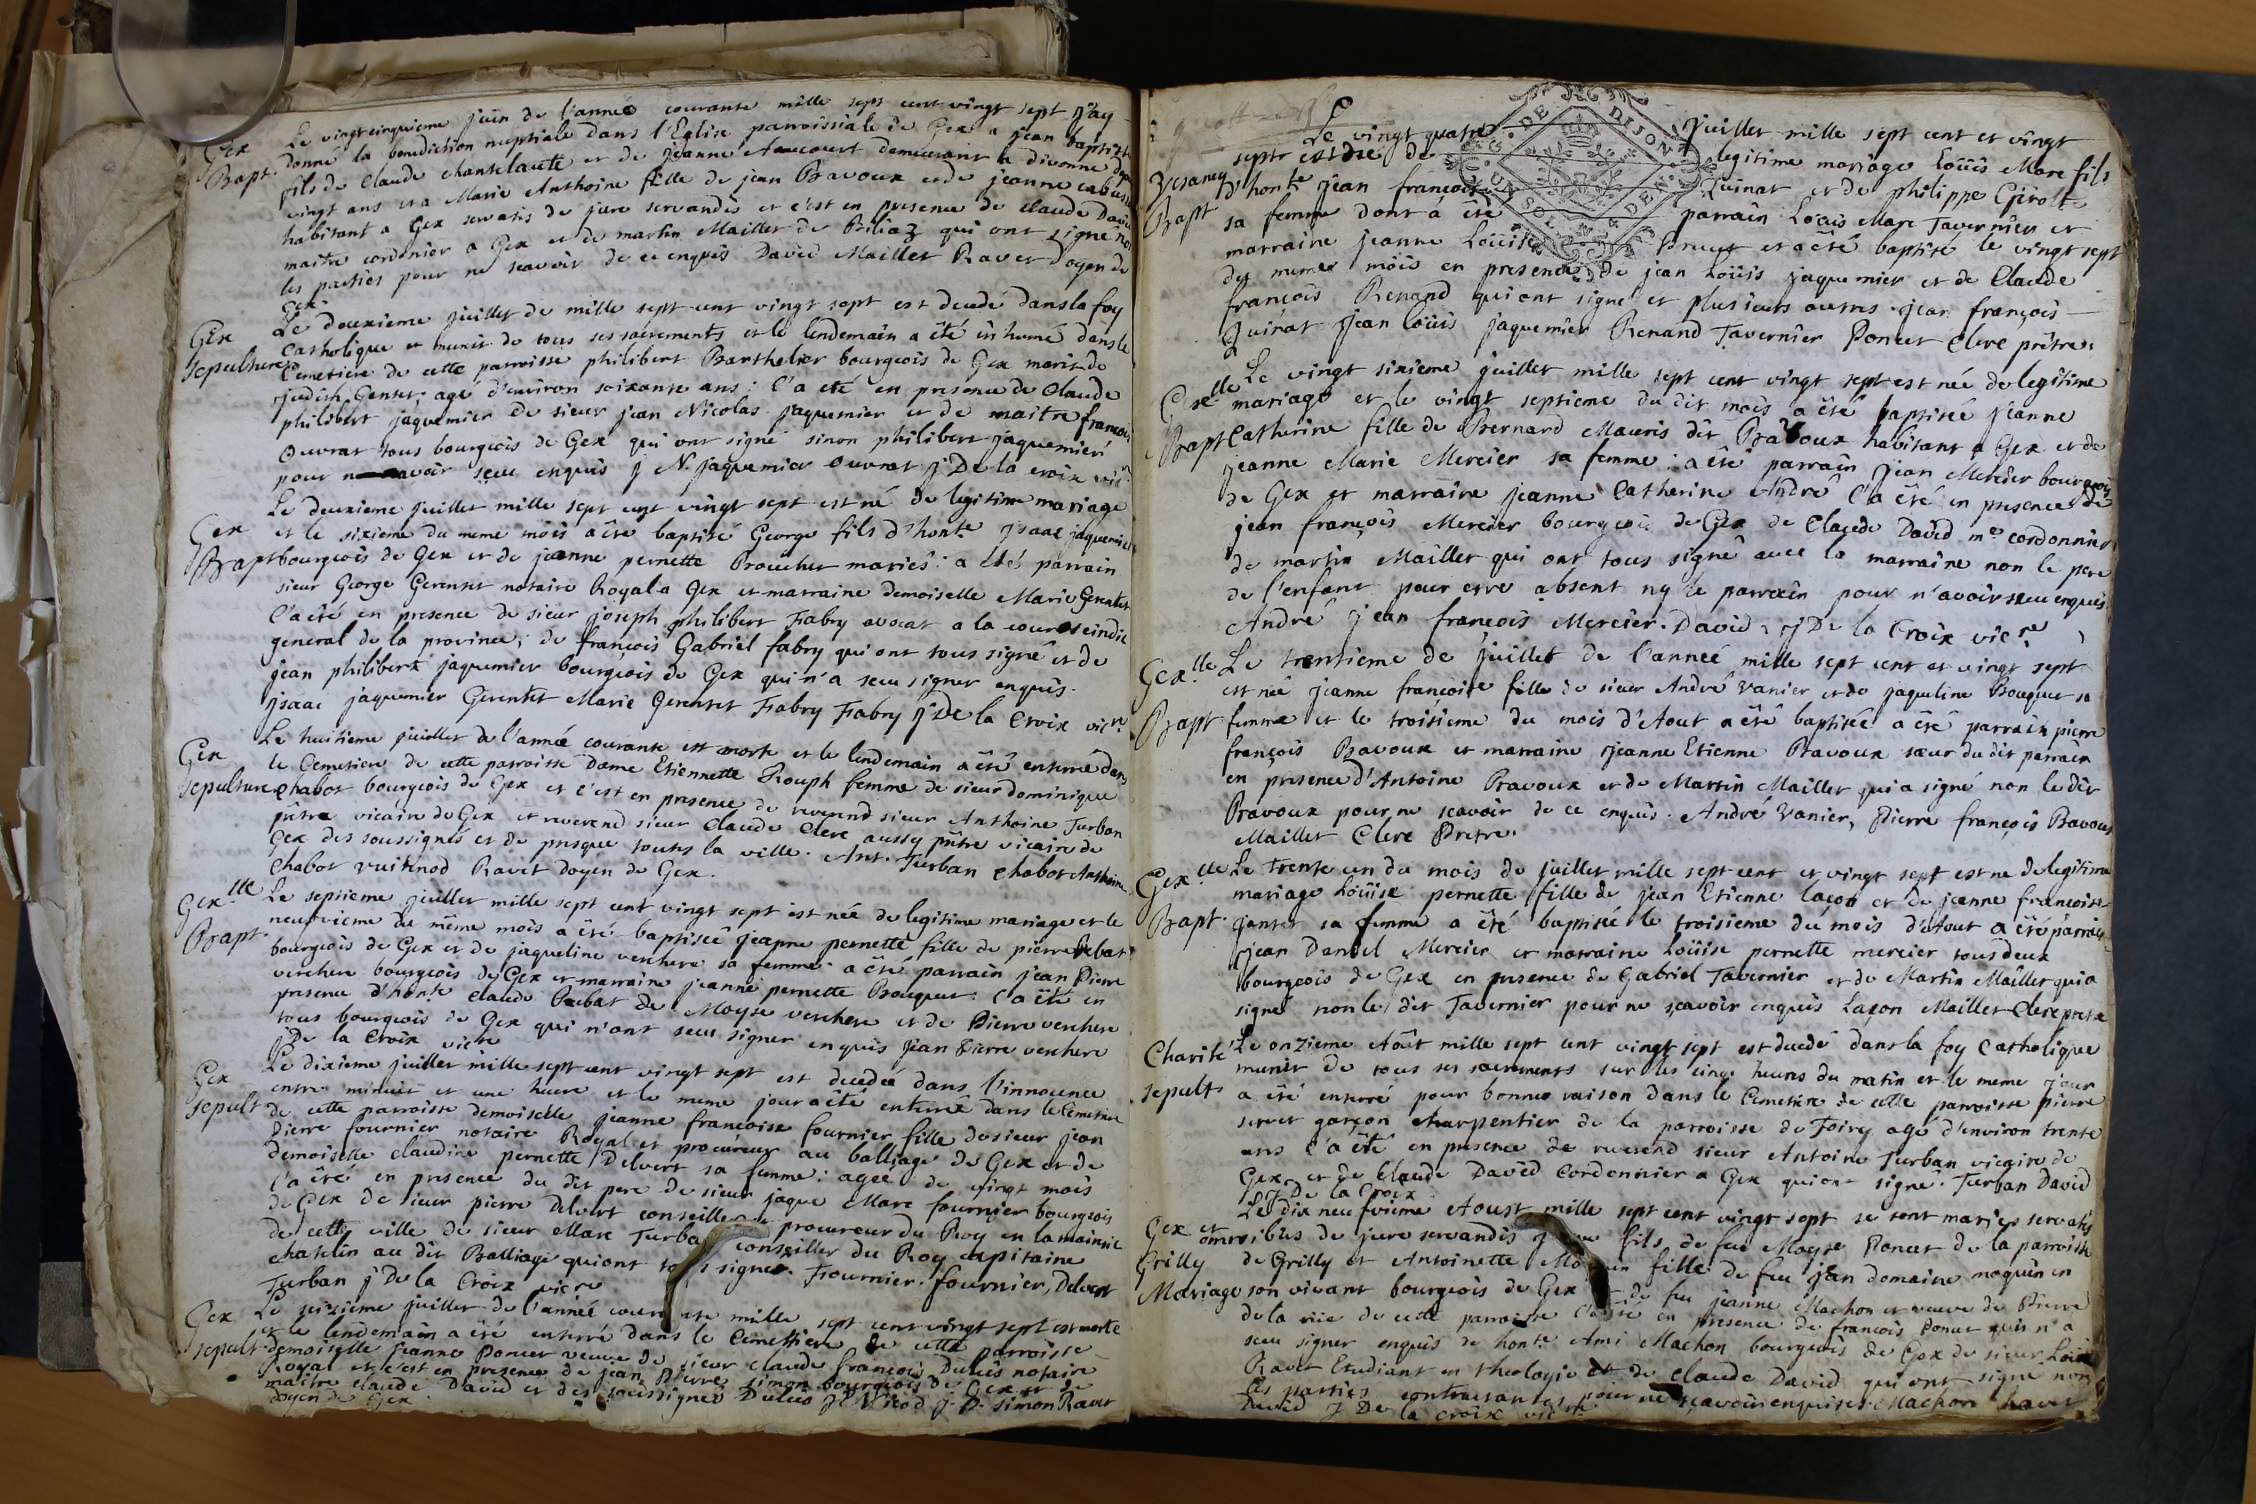 Gex Le vingt cinquieme juin de l'année courante mille sept cent vingt sept j'ay
Bapt. donné la benediction nuptiale dans l'Eglise parroissiale de Gex a jean baptiste
fils de Claude chantelaute et de jeanne demeurant a divonne
vingt ans et a Marie Anthoine fille de jean Bavoux et de jeanne
habitant a Gex servatis de jure servandis et c'est en presence de claude David
maitre cordonier a Gex et de martin Maillet de qui ont signé non
les parties pour ne scavoir de ce enquis David Maillet Ravet Doyen de
Gex.
Gex Le deuxieme juillet de mille sept cent vingt sept est decedé dans la foy
Catholique et munit de tous ses sacrements et le lendemain a été inhumé dans le
sepulture Cemetiere de cette parroisse philibert Barthelier bourgeois de Gex marit de
judith Genter agé d'environ soixante ans : C'a eté en presence de Claude
philibert jaquemier de sieur jean Nicolas jaquemier et de maitre francois
Duvrat tous bourgeois de Gex qui ont signé sinon philibert jaquemier
pour n avoir sceu enquis j N. jaquemier Duvrat j De la croix vic
Le deuxieme juillet mille sept cent vingt sept est né de legitime mariage
Gex et le sixieme du meme mois a été baptisé George fils d'hon.te jsaac jaquemier
Bapt bourgeois de Gex et de jeanne pernette Broucher mariés : a été parrain
sieur George Gerentet notaire Royal a Gex et marraine demoiselle Marie Gerentet
C'a été en presence de sieur joseph philibert Fabry avocat a la cour et scindic
general de la province ; de françois Gabriel fabry qui ont tous signé et de
jean philibert jaquemier bourgeois de Gex qui n'a sceu signer enquis.
jsaac jaquemier Gerentet Marie Gerentet Fabry Fabry j De la Croix vic.re
Gex Le huitieme juillet de l'année courante est morte et le lendemain a été enterrée dans
le Cemetiere de cette parroisse Dame Etiennette Rouph femme de sieur dominique
sepulture chabot bourgeois de Gex et c'est en presence de reverend sieur Anthoine Turban
prêtre vicaire de Gex et reverend sieur Claude Clerc aussy prêtre vicaire de
Gex des soussignés et de presque toute la ville. Ant. Turban chabot Anthoine
Chabot vuitinod Ravet doyen de Gex.
Gex.lle Le septieme juillet mille sept cent vingt sept est née de legitime mariage et le
Bapt. neufvieme du même mois a été baptisée jeanne pernette fille de pierre
bourgeois de Gex et de jaqueline verchere sa femme : a été parrain jean Pierre
verchere bourgeois de Gex et marraine jeanne pernette Bouquet : C'a été en
presence d'hon.te claude de Moyse verchere et de Pierre verchere
tous bourgeois de Gex qui n'ont sceu signer enquis jean Pierre verchere
j De la Croix vic.re
Gex Le dixieme juillet mille sept cent vingt sept est decedée dans l'innocence
entre minuit et une heure et le meme jour a été enterrée dans le Cemetiere
sepult de cette parroisse demoiselle jeanne françoise fournier fille de sieur jean
Pierre fournier notaire Royal et procureur au balliage de Gex et de
demoiselle claudine pernette Delvert sa femme : agée de vingt mois
C'a été en presence du dit pere de sieur jaque Marc fournier bourgeois
de Gex de sieur pierre Delvert conseiller procureur du Roy en la mairie
de cette ville de sieur Marc Turba conseiller du Roy capitaine
chatelin au dit Balliage qui ont signé. Fournier. fournier, Delvert
Turban j De la Croix vic.re
Gex Le seizieme juillet de l'année courante mille sept cent vingt sept est morte
et le lendemain a été enterré dans le Cemettiere de cette parroisse
sepult demoiselle jeanne Poncet veuve de sieur claude francois Duluis notaire
Royal et c'est en presence de jean Pierre simon bourgeois de Gex et de
maitre claude David et des soussignés Duluis j. P. simon Ravet
doyen de Gex.
Le vingt quatre juillet mille sept cent et vingt
sept est né de legitime mariage Loüis Marc fils
Vesancy d'hon.te jean françois Quinat et de philippe Girolt
Bapt sa femme dont a été parrain Loüis Marc Tavernier et
marraine jeanne Loüise et a été baptisé le vingt sept
du meme möis en presence de jean Loüis jaquemier et de Claude
françois Renand qui ont signé et plusieurs autres. jean françois
Quinat jean loüis jaquemier Renand Tavernier Poncet Clerc prêtre.
Gex.lle Le vingt sixieme juillet mille sept cent vingt sept est née de legitime
mariage et le vingt septieme du dit mois a été baptisée jeanne
Bapt Catherine fille de Bernard Mauris dit Bavoux habitant a Gex et de
jeanne Marie Mercier sa femme : a été parrain jean Mercier bourgeois
de Gex et marraine jeanne Catherine André C'a été en presence de
jean françois Mercier bourgeois de Gex de Claude David m.e cordonnier
de martin Maillet qui ont tous signé avec la marraine non le pere
de l'enfant pour etre absent ny le parrain pour n'avoir sceu enquis
André jean françois Mercier. David, j De la Croix vic.re
Gex.lle Le trentieme de juillet de l'année mille sept cent et vingt sept
est née jeanne françoise fille de sieur André Vanier et de jaqueline Bouquet sa
Bapt femme et le troisieme du mois d'Aout a été baptisée a été parrain pierre
françois Bavoux et marraine jeanne Etienne Bavoux sœur du dit parrain
en presence d'Antoine Bavoux et de Martin Maillet qui a signé non le dit
Bavoux pour ne scavoir de ce enquis. André Vanier, Pierre françois Bavoux
Maillet Clerc Pretre.
Gex.lle Le trente un du mois de juillet mille sept cent et vingt sept est ne de legitime
mariage Loüise pernette fille de jean Etienne laçon et de jeanne françoise
Bapt. ganter sa femme a été baptisée le troisieme du mois d'Aout a été parrain
jean Daniel Mercier et marraine Loüise pernette mercier tous deux
bourgeois de Gex en presence de Gabriel Tavernier et de Martin Maillet qui a
signé non le dit Tavernier pour ne scavoir enquis Laçon Maillet Clerc pretre
Charité Le onzieme Aôut mille sept cent vingt sept est decedé dans la foy Catholique
munit de tous ses sacrements sur les cinqs heures du matin et le meme jour
sepult a été enterré pour bonne raison dans le Cemetiere de cette parroisse pierre
servet garçon charpentier de la parroisse de Toiry agé d'environ trente
ans C'a été en presence de reverend sieur Antoine Turban vicaire de
Gex et de Claude David Cordonnier a Gex qui ont signé. Turban David
j De la Croix
Gex et Le dix neufvieme Aoust mille sept cent vingt sept se sont mariés servatis
omnibus de jure servandis fils de feu Moyse Poncet de la parroisse
Grilly de Grilly et Antoinette fille de feu jean domaine maquin en
Mariage son vivant bourgeois de Gex de feu jeanne Machon et veuve de Pierre
de la rüe de cette parroisse C'a été en presence de françois Poncet qui n'a
sceu signer enquis de hon.te Ami Machon bourgeois de Gex de sieur Loüis
Ravet Etudiant en theologie et de claude David qui ont signé non
les parties contractantes pour ne scavoir enquises. Machon Ravet
David j De la croix vic.re
DE DIJON
UN SOL
G. DEN